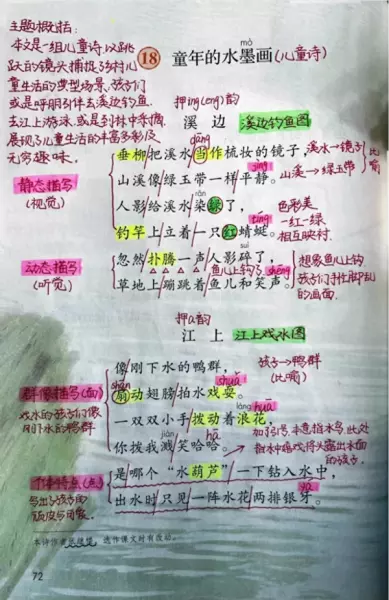 主题概括：
本文是一组儿童诗，以跳
跃的镜头捕捉到村儿
童生活的典型场景，孩子们
或是呼朋引伴去溪边钓鱼，
去江上游泳，或是到林中采蘑，
展现了儿童生活的丰富多彩及
无穷趣味。
mò
18 童年的水墨画(儿童诗)
押ing(eng)韵
溪 边 溪边钓鱼图
dàng
垂柳把溪水当作梳妆的镜子，
溪水→镜子
jìng
山溪像绿玉带一样平静。
山溪→绿玉带
比喻
静态描写
(视觉)
rǎn
人影给溪水染绿了，
tíng
钓竿上立着一只红蜻蜓。
色彩美
一红一绿
相互映衬
忽然扑腾一声人影碎了，
动态描写
(听觉)
鱼儿上钩了 shēng
草地上蹦跳着鱼儿和笑声。
想象鱼儿上钩
孩子们手忙脚乱
的画面
押a韵
江 上 江上戏水图
像刚下水的鸭群，
孩子→鸭群
(比喻)
群像描写(面)
戏水的孩子们像
刚下水的鸭群
shān
shuǎ
扇动翅膀拍水戏耍。
làng huā
一双双小手拨动着浪花，
jiàn
hā
你拨我溅笑哈哈。
加引号,本意指水鸟,此处
指水中嬉戏,将头露出水面
的孩子。
个体特点(点)
写出了孩子的
顽皮与可爱。
是哪个“水葫芦”一下钻入水中，
yá
出水时只见一阵水花两排银牙。
本诗作者张继楼，选作课文时有改动。
72